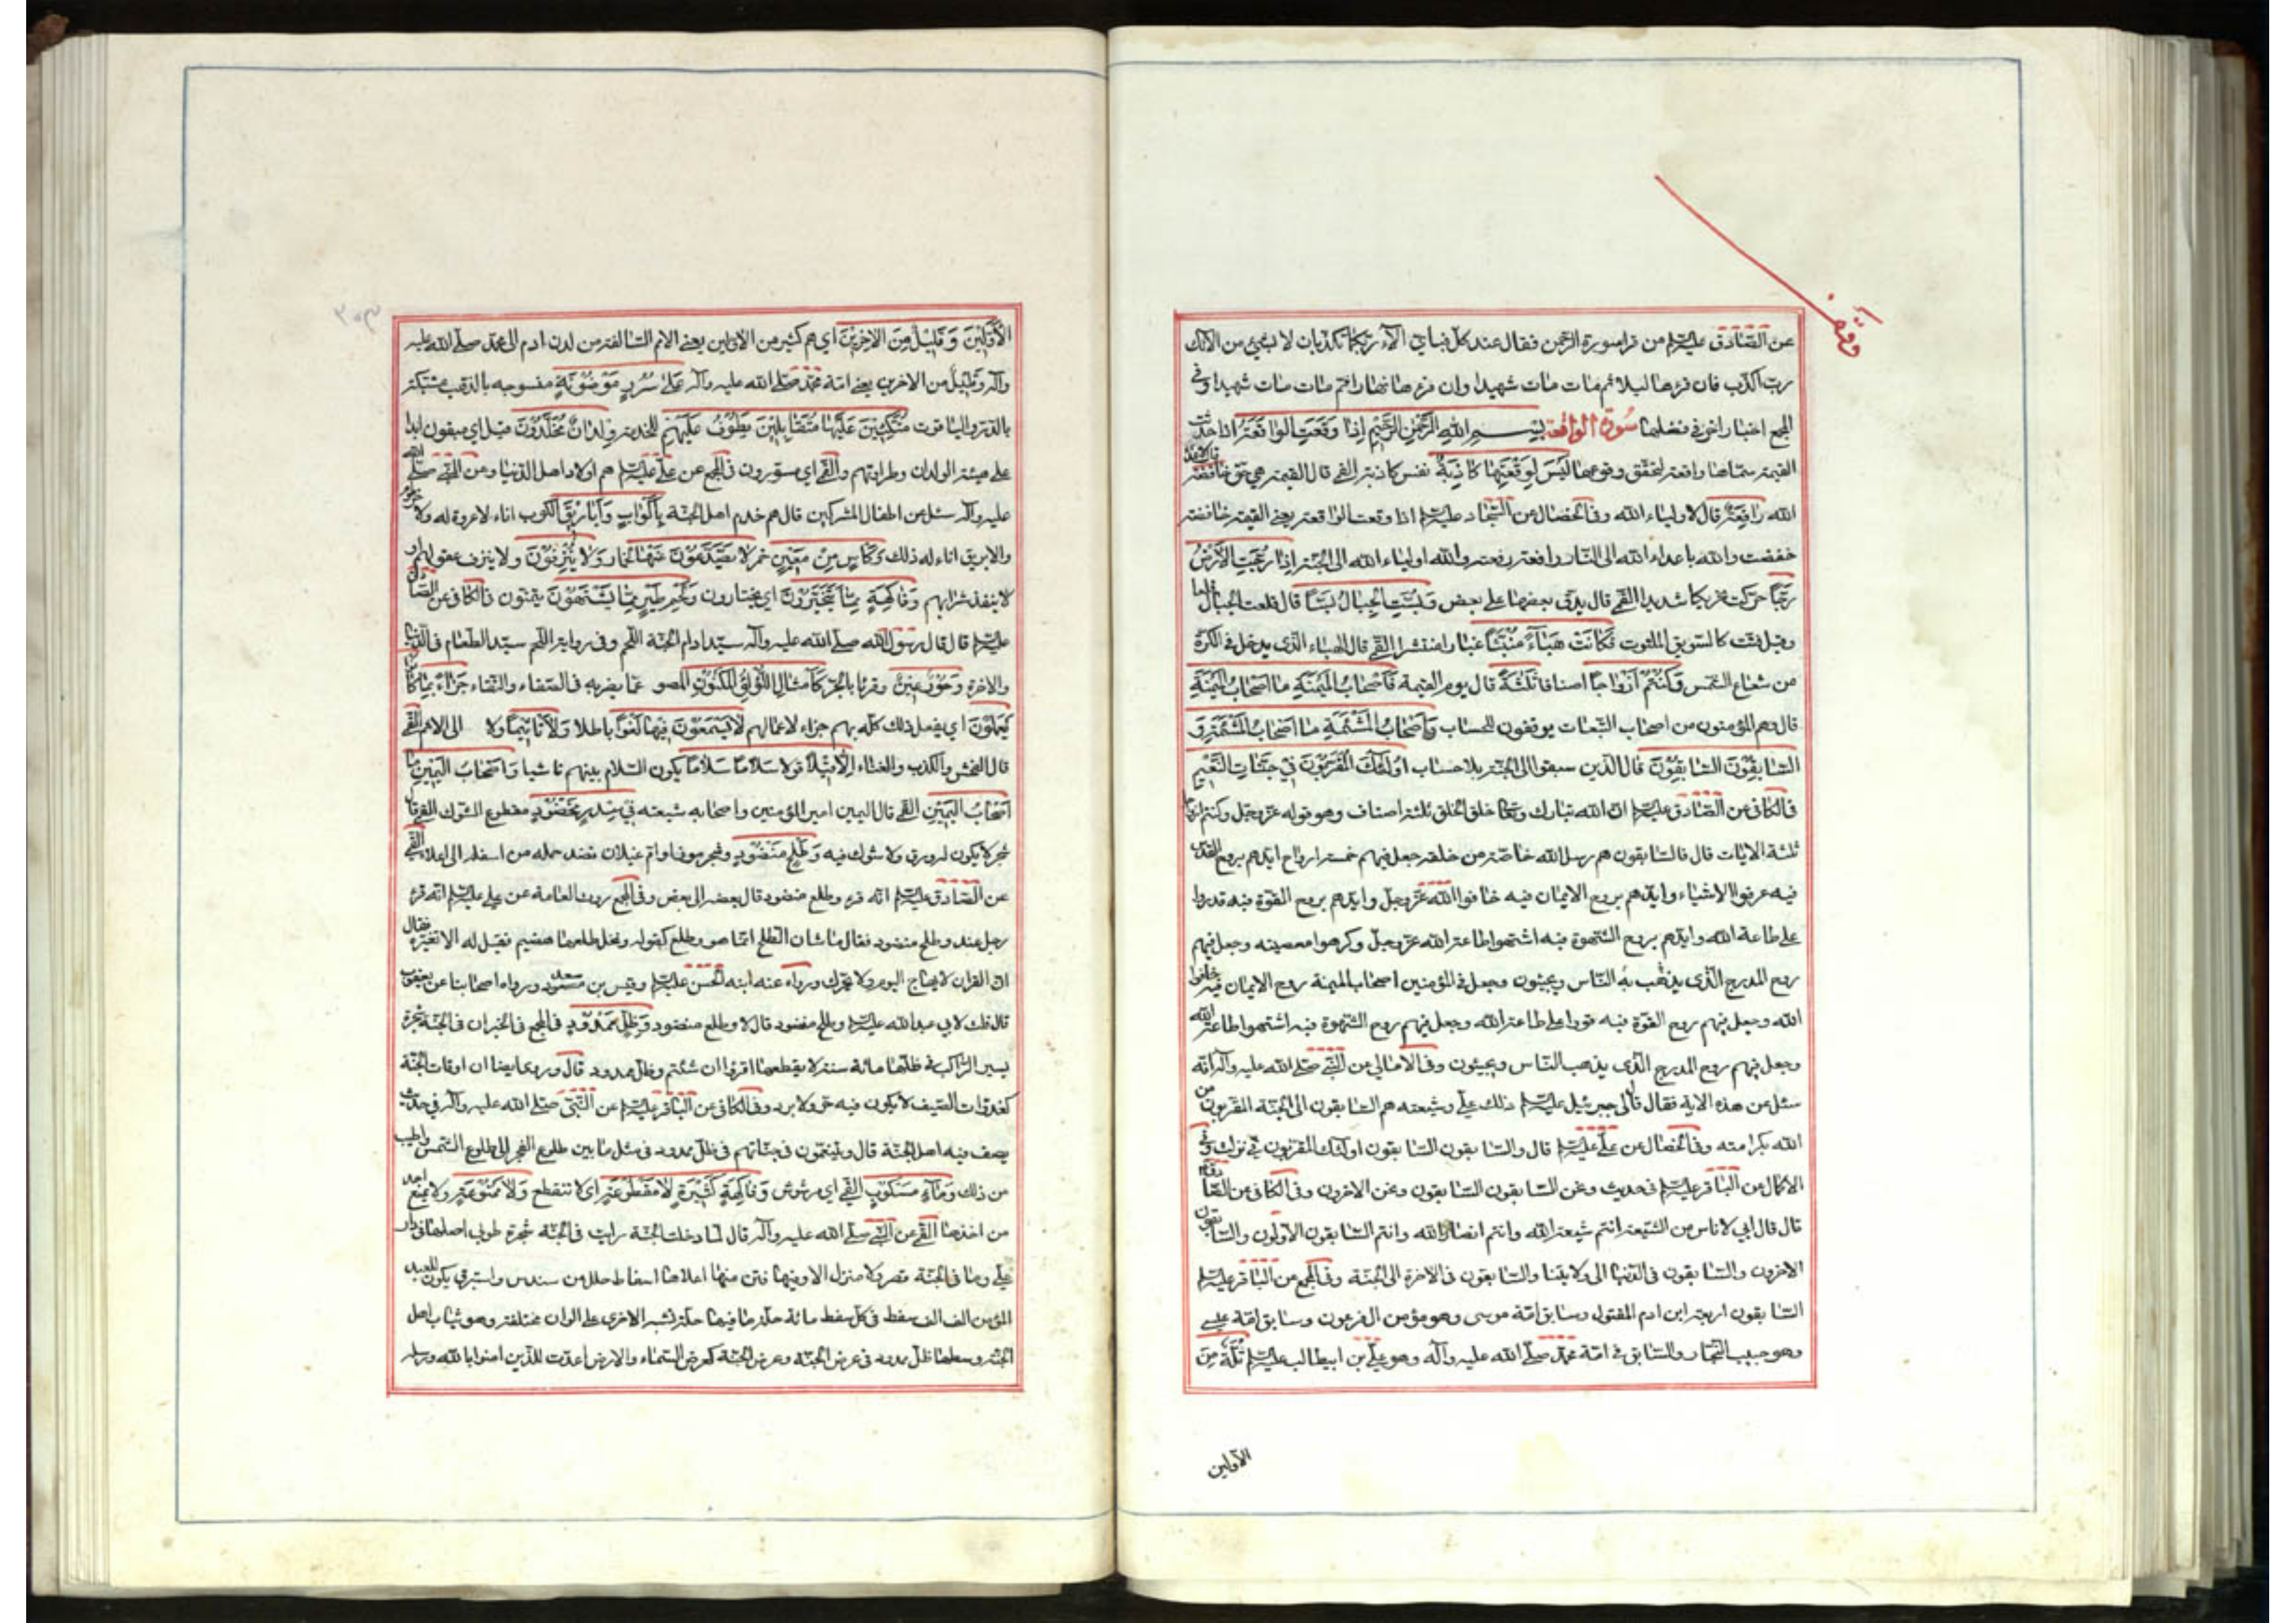 وقف
عن الصادق عليه السلام من قرا سورة الرحمن فقال عند كل فباي الآء ربكما تكذبان لا بشئ من الائك
رب اكذب فان قرءها ليلا ثم مات مات شهيدا وان قرءها نهارا ثم مات مات شهيدا وفي
المجمع اخبار اخر في فضلها سورة الواقعة بسم الله الرحمن الرحيم اذا وقعت الواقعة اذا حدثت
القيمة سماها واقعة لتحقق وقوعها ليس لوقعتها كاذبة نفس كاذبة القمي قال القيمة هي حق خافضة
الله رافعة قال لاولياء الله وفي الخصال عن السجاد عليه السلام اذا وقعت الواقعة يعني القيمة خافضة
خفضت والله باعداء الله الى النار رافعة رفعت والله اولياء الله الى الجنة اذا رجت الارض
رجا حركت تحريكا شديدا القمي قال يدق بعضها على بعض وبست الجبال بسا قال قلعت الجبال
وقيل فتت كالسويق الملتوت فكانت هباء منبثا غبارا منتشرا القمي قال الهباء الذي يدخل في الكوة
من شعاع الشمس وكنتم ازواجا اصنافا ثلثة قال يوم القيمة فاصحاب الميمنة ما اصحاب الميمنة
قال وهم المؤمنون من اصحاب التبعات يوقفون للحساب واصحاب المشئمة ما اصحاب المشئمة و
السابقون السابقون قال الذين سبقوا الى الجنة بلا حساب اولئك المقربون في جنات النعيم
في الكافي عن الصادق عليه السلام ان الله تبارك وتعالى خلق الخلق ثلثة اصناف وهو قوله عز وجل وكنتم ازواجا
ثلثة الايات قال فالسابقون هم رسل الله خاصة من خلقه جعل فيهم خمسة ارواح ايدهم بروح القدس
فيه عرفوا الاشياء وايدهم بروح الايمان فيه خافوا الله عز وجل وايدهم بروح القوة فبه قدروا
على طاعة الله وايدهم بروح الشهوة فبه اشتهوا طاعة الله عز وجل وكرهوا معصيته وجعل فيهم
روح المدرج الذي يذهب به الناس ويجيئون وجعل في المؤمنين اصحاب الميمنة روح الايمان فبه خافوا
الله وجعل فيهم روح القوة فبه قووا على طاعة الله وجعل فيهم روح الشهوة فبه اشتهوا طاعة الله
وجعل فيهم روح المدرج الذي يذهب الناس ويجيئون وفي الامالي عن النبي صلى الله عليه وآله انه
سئل عن هذه الاية فقال قال لي جبرئيل عليه السلام ذلك علي وشيعته هم السابقون الى الجنة المقربون من
الله بكرامته وفي الخصال عن علي عليه السلام قال والسابقون السابقون اولئك المقربون في نزلت وفي
الاكمال عن الباقر عليه السلام في حديث ونحن السابقون السابقون ونحن الاخرون وفي الكافي عن الصادق
قال قال ابي لاناس من الشيعة انتم شيعة الله وانتم انصار الله وانتم السابقون الاولون والسابقون
الاخرون والسابقون في الدنيا الى ولايتنا والسابقون في الاخرة الى الجنة وفي المجمع عن الباقر عليه السلام
السابقون اربعة ابن ادم المقتول وسابق امة موسى وهو مؤمن ال فرعون وسابق امة عيسى
وهو حبيب النجار والسابق في امة محمد صلى الله عليه وآله وهو علي بن ابيطالب عليه السلام ثلة من
الاولين
الاولين وقليل من الاخرين اي هم كثير من الاولين يعني الامم السالفة من لدن ادم الى محمد صلى الله عليه
وآله وقليل من الاخرين يعني امة محمد صلى الله عليه وآله على سرر موضونة منسوجة بالذهب مشبكة
بالدر والياقوت متكئين عليها متقابلين يطوف عليهم للخدمة ولدان مخلدون قيل اي مبقون ابدا
على هيئة الولدان وطراوتهم والقمي اي مسورون في المجمع عن علي عليه السلام هم اولاد اهل الدنيا وعن النبي صلى الله
عليه وآله سئل عن اطفال المشركين قال هم خدم اهل الجنة باكواب واباريق الكوب اناء لا عروة له ولا خرطوم
والابريق اناء له ذلك وكاس من معين خمر لا يصدعون عنها لخمار ولا ينزفون ولا ينزف عقولهم او
لا ينفذ شرابهم وفاكهة مما يتخيرون اي يختارون ولحم طير مما يشتهون يتمنون في الكافي عن الصادق
عليه السلام قال قال رسول الله صلى الله عليه وآله سيد ادام الجنة اللحم وفي رواية اللحم سيد الطعام في الدنيا
والاخرة وحور عين وقرئا بالجر كامثال اللؤلؤ المكنون المصو عما يضر به في الصفاء والنقاء جزاء بما كانوا
يعملون اي يفعل ذلك كله بهم جزاء لاعمالهم لا يسمعون فيها لغوا باطلا ولا تاثيما ولا الى الاثم القمي
قال الفحش والكذب والغناء الا قيلا قولا سلاما سلاما يكون السلام بينهم فاشيا واصحاب اليمين ما
اصحاب اليمين القمي قال اليمين امير المؤمنين واصحابه شيعته في سدر مخضود مقطوع الشوك القمي قال
شجر لا يكون له ورق ولا شوك فيه وطلح منضود وشجر موز او ام غيلان نضد حمله من اسفله الى اعلاه القمي
عن الصادق عليه السلام انه قرء وطلع منضود قال بعضه الى بعض وفي المجمع روت العامة عن علي عليه السلام انه قرء
رجل عنده وطلح منضود فقال ما شان الطلح انما هو وطلع كقوله ونخل طلعها هضيم فقيل له الا تغيره فقال
ان القران لا يهاج اليوم ولا يحرك ورواه عنه ابنه الحسن عليه السلام وقيس بن سعد ورواه اصحابنا عن يعقوب
قال قلت لابي عبد الله عليه السلام وطلح منضود قال لا وطلع منضود وظل ممدود في المجمع في الخبر ان في الجنة شجرة
يسير الراكب في ظلها مائة سنة لا يقطعها اقرؤا ان شئتم وظل ممدود قال وروي ايضا ان اوقات الجنة
كغدوات الصيف لا يكون فيه حر ولا برد وفي الكافي عن الباقر عليه السلام عن النبي صلى الله عليه وآله في حديث
يصف فيه اهل الجنة قال ويتنعمون في جناتهم في ظل ممدود في مثل ما بين طلوع الفجر الى طلوع الشمس واطيب
من ذلك وماء مسكوب القمي اي مرشوش وفاكهة كثيرة لا مقطوعة اي لا تنقطع ولا ممنوعة ولا يمنع احد
من اخذها القمي عن النبي صلى الله عليه وآله قال لما دخلت الجنة رايت في الجنة شجرة طوبى اصلها في دار
علي وما في الجنة قصر ولا منزل الا وفيها فتن منها اعلاها اسفاط حلل من سندس واستبرق يكون للعبد
المؤمن الف الف سفط في كل سفط مائة حلة ما فيها حلة تشبه الاخرى على الوان مختلفة وهو ثياب اهل
الجنة وسطها ظل ممدود في عرض الجنة وعرض الجنة كعرض السماء والارض اعدت للذين امنوا بالله ورسله